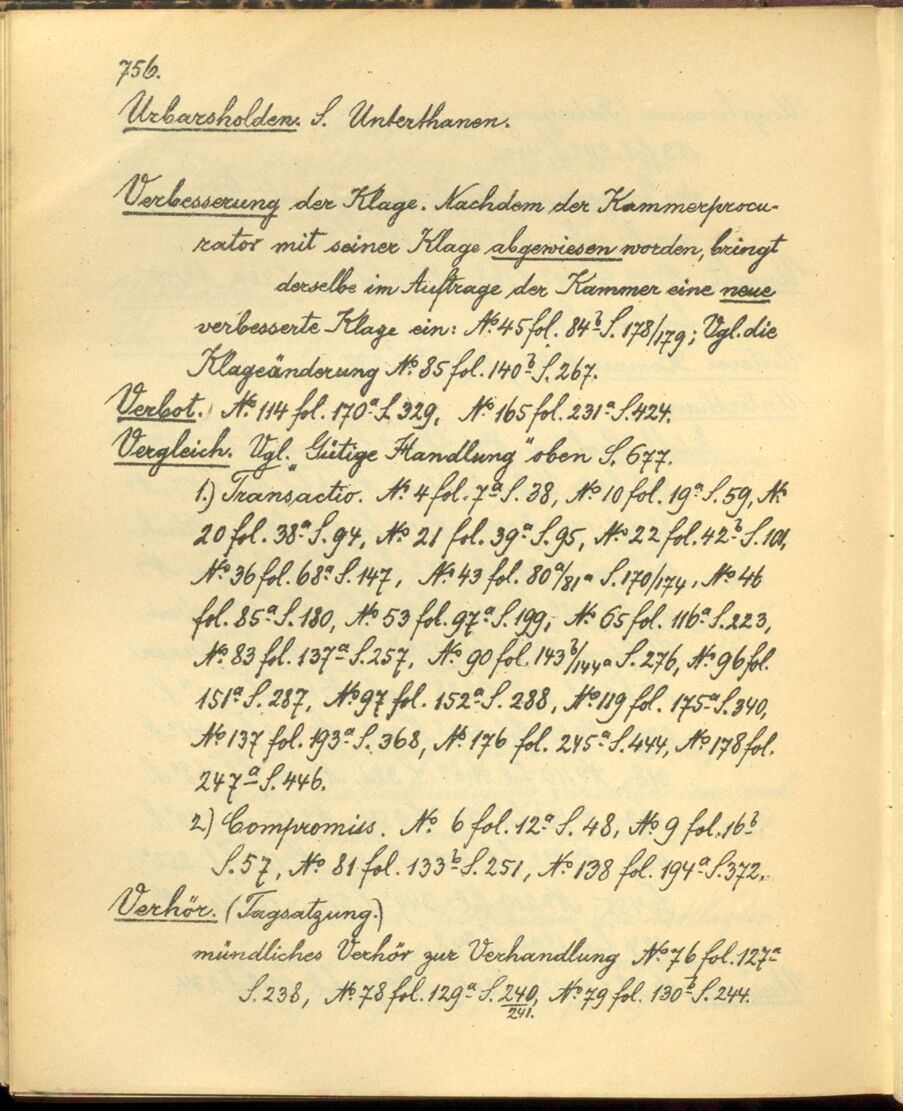 756.
Urbarsholden. S. Unterthanen.
Verbesserung der Klage. Nachdem der Kammerprocu-
rator mit seiner Klage abgewiesen worden, bringt
derselbe im Auftrage der Kammer eine neue
verbesserte Klage ein: No. 45 fol. 84b S. 178/179; Vgl. die
Klageänderung No. 85 fol. 140b S. 267.
Verbot. No. 114 fol. 170a S. 329, No. 165 fol. 231a S. 424.
Vergleich. Vgl. „Gütige Handlung" oben S. 677.
1.) Transactio. No. 4 fol. 7a S. 38, No. 10 fol. 19a S. 59, No.
20 fol. 38a S. 94, No. 21 fol. 39a S. 95, No. 22 fol. 42b S. 101,
No. 36 fol. 68a S. 147, No. 43 fol. 80a/81a S. 170/174, No. 46
fol. 85a S. 180, No. 53 fol. 97a S. 199, No. 65 fol. 116a S. 223,
No. 83 fol. 137a S. 257, No. 90 fol. 143b/144a S. 276, No. 96 fol.
151a S. 287, No. 97 fol. 152a S. 288, No. 119 fol. 175a S. 340,
No. 137 fol. 193a S. 368, No. 176 fol. 245a S. 444, No. 178 fol.
247a S. 446.
2.) Compromiss. No. 6 fol. 12a S. 48, No. 9 fol. 16b
S. 57, No. 81 fol. 133b S. 251, No. 138 fol. 194a S. 372.
Verhör. (Tagsatzung.)
mündliches Verhör zur Verhandlung No. 76 fol. 127a
S. 238, No. 78 fol. 129a S. 240/241, No. 79 fol. 130b S. 244.